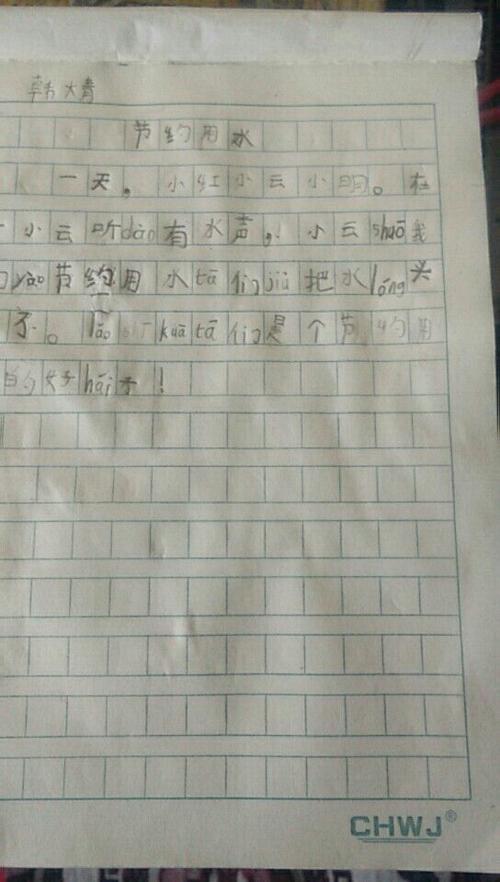 韩大青
节约用水
一天。小红小云小明。在
小云听dào有水声,小云shuō我
们yào节约用水tā们jiù把水lóng头
了。lǎo kuā tā们是个节约用
的好hái子!
CHWJ®